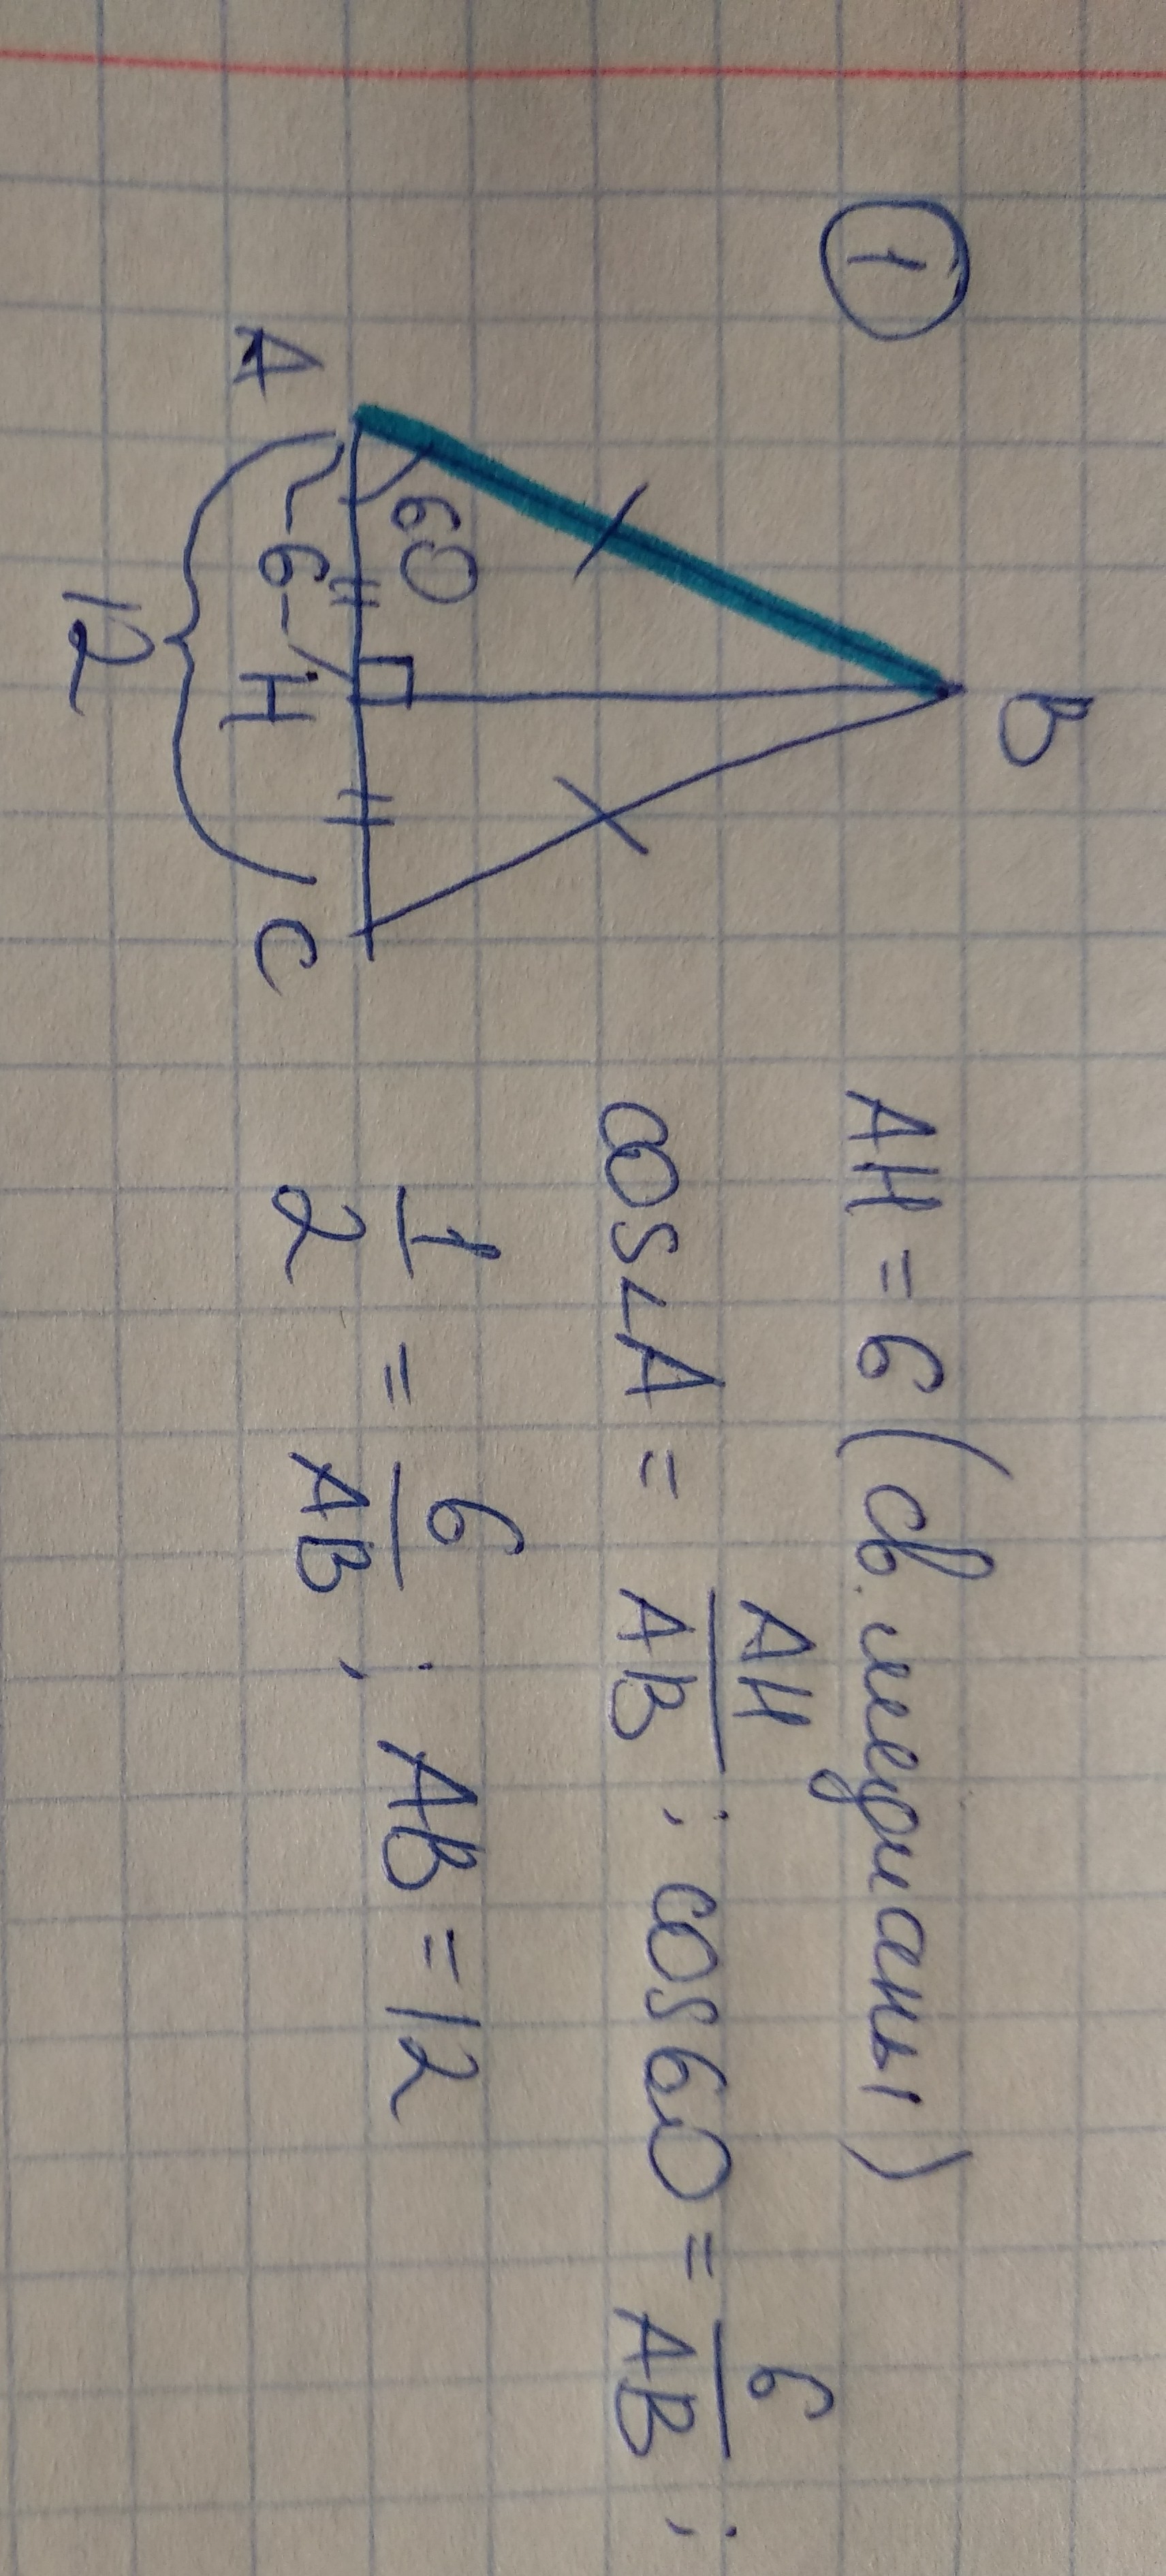 1
B
60
A
6
H
C
12
AH = 6 (св. медианы)
cos∠A = AH/AB ; cos60 = 6/AB ;
1/2 = 6/AB ; AB = 12